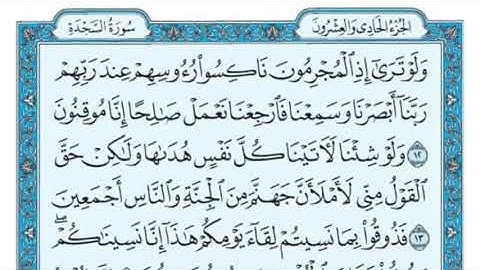 الجزء الحادي والعشرون
سورة السجدة
وَلَوْ تَرَىٰٓ إِذِ ٱلْمُجْرِمُونَ نَاكِسُوا۟ رُءُوسِهِمْ عِندَ رَبِّهِمْ
رَبَّنَآ أَبْصَرْنَا وَسَمِعْنَا فَٱرْجِعْنَا نَعْمَلْ صَٰلِحًا إِنَّا مُوقِنُونَ
١٢ وَلَوْ شِئْنَا لَءَاتَيْنَا كُلَّ نَفْسٍ هُدَىٰهَا وَلَٰكِنْ حَقَّ
ٱلْقَوْلُ مِنِّى لَأَمْلَأَنَّ جَهَنَّمَ مِنَ ٱلْجِنَّةِ وَٱلنَّاسِ أَجْمَعِينَ
١٣ فَذُوقُوا۟ بِمَا نَسِيتُمْ لِقَآءَ يَوْمِكُمْ هَٰذَآ إِنَّا نَسِينَٰكُمْ ۖ